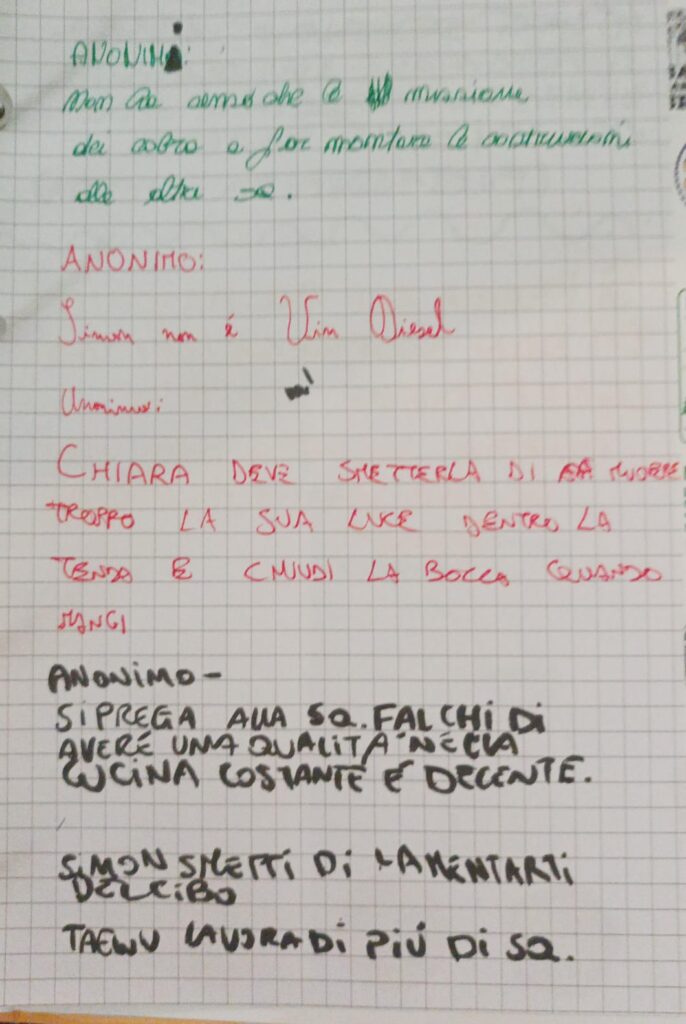 ANONIMO:
Non ho senso che è missione
dei
alle altre sq.
ANONIMO:
Simon non é Vin Diesel
Anonimus:
CHIARA DEVE SMETTERLA DI
TROPPO LA SUA LUCE DENTRO LA
TENDA E CHIUDI LA BOCCA QUANDO
MANGI
ANONIMO-
SI PREGA ALLA SQ. FALCHI DI
AVERE UNA QUALITÀ NELLA
CUCINA COSTANTE É DECENTE.
SIMON SMETTI DI LAMENTARTI
DEL CIBO
TAEWU LAVORA DI PIÚ DI SQ.